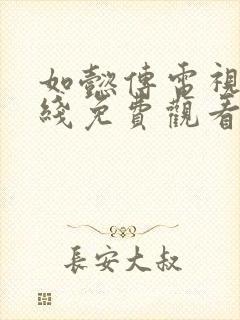 如懿傳電視
綫免費觀看
長安大叔